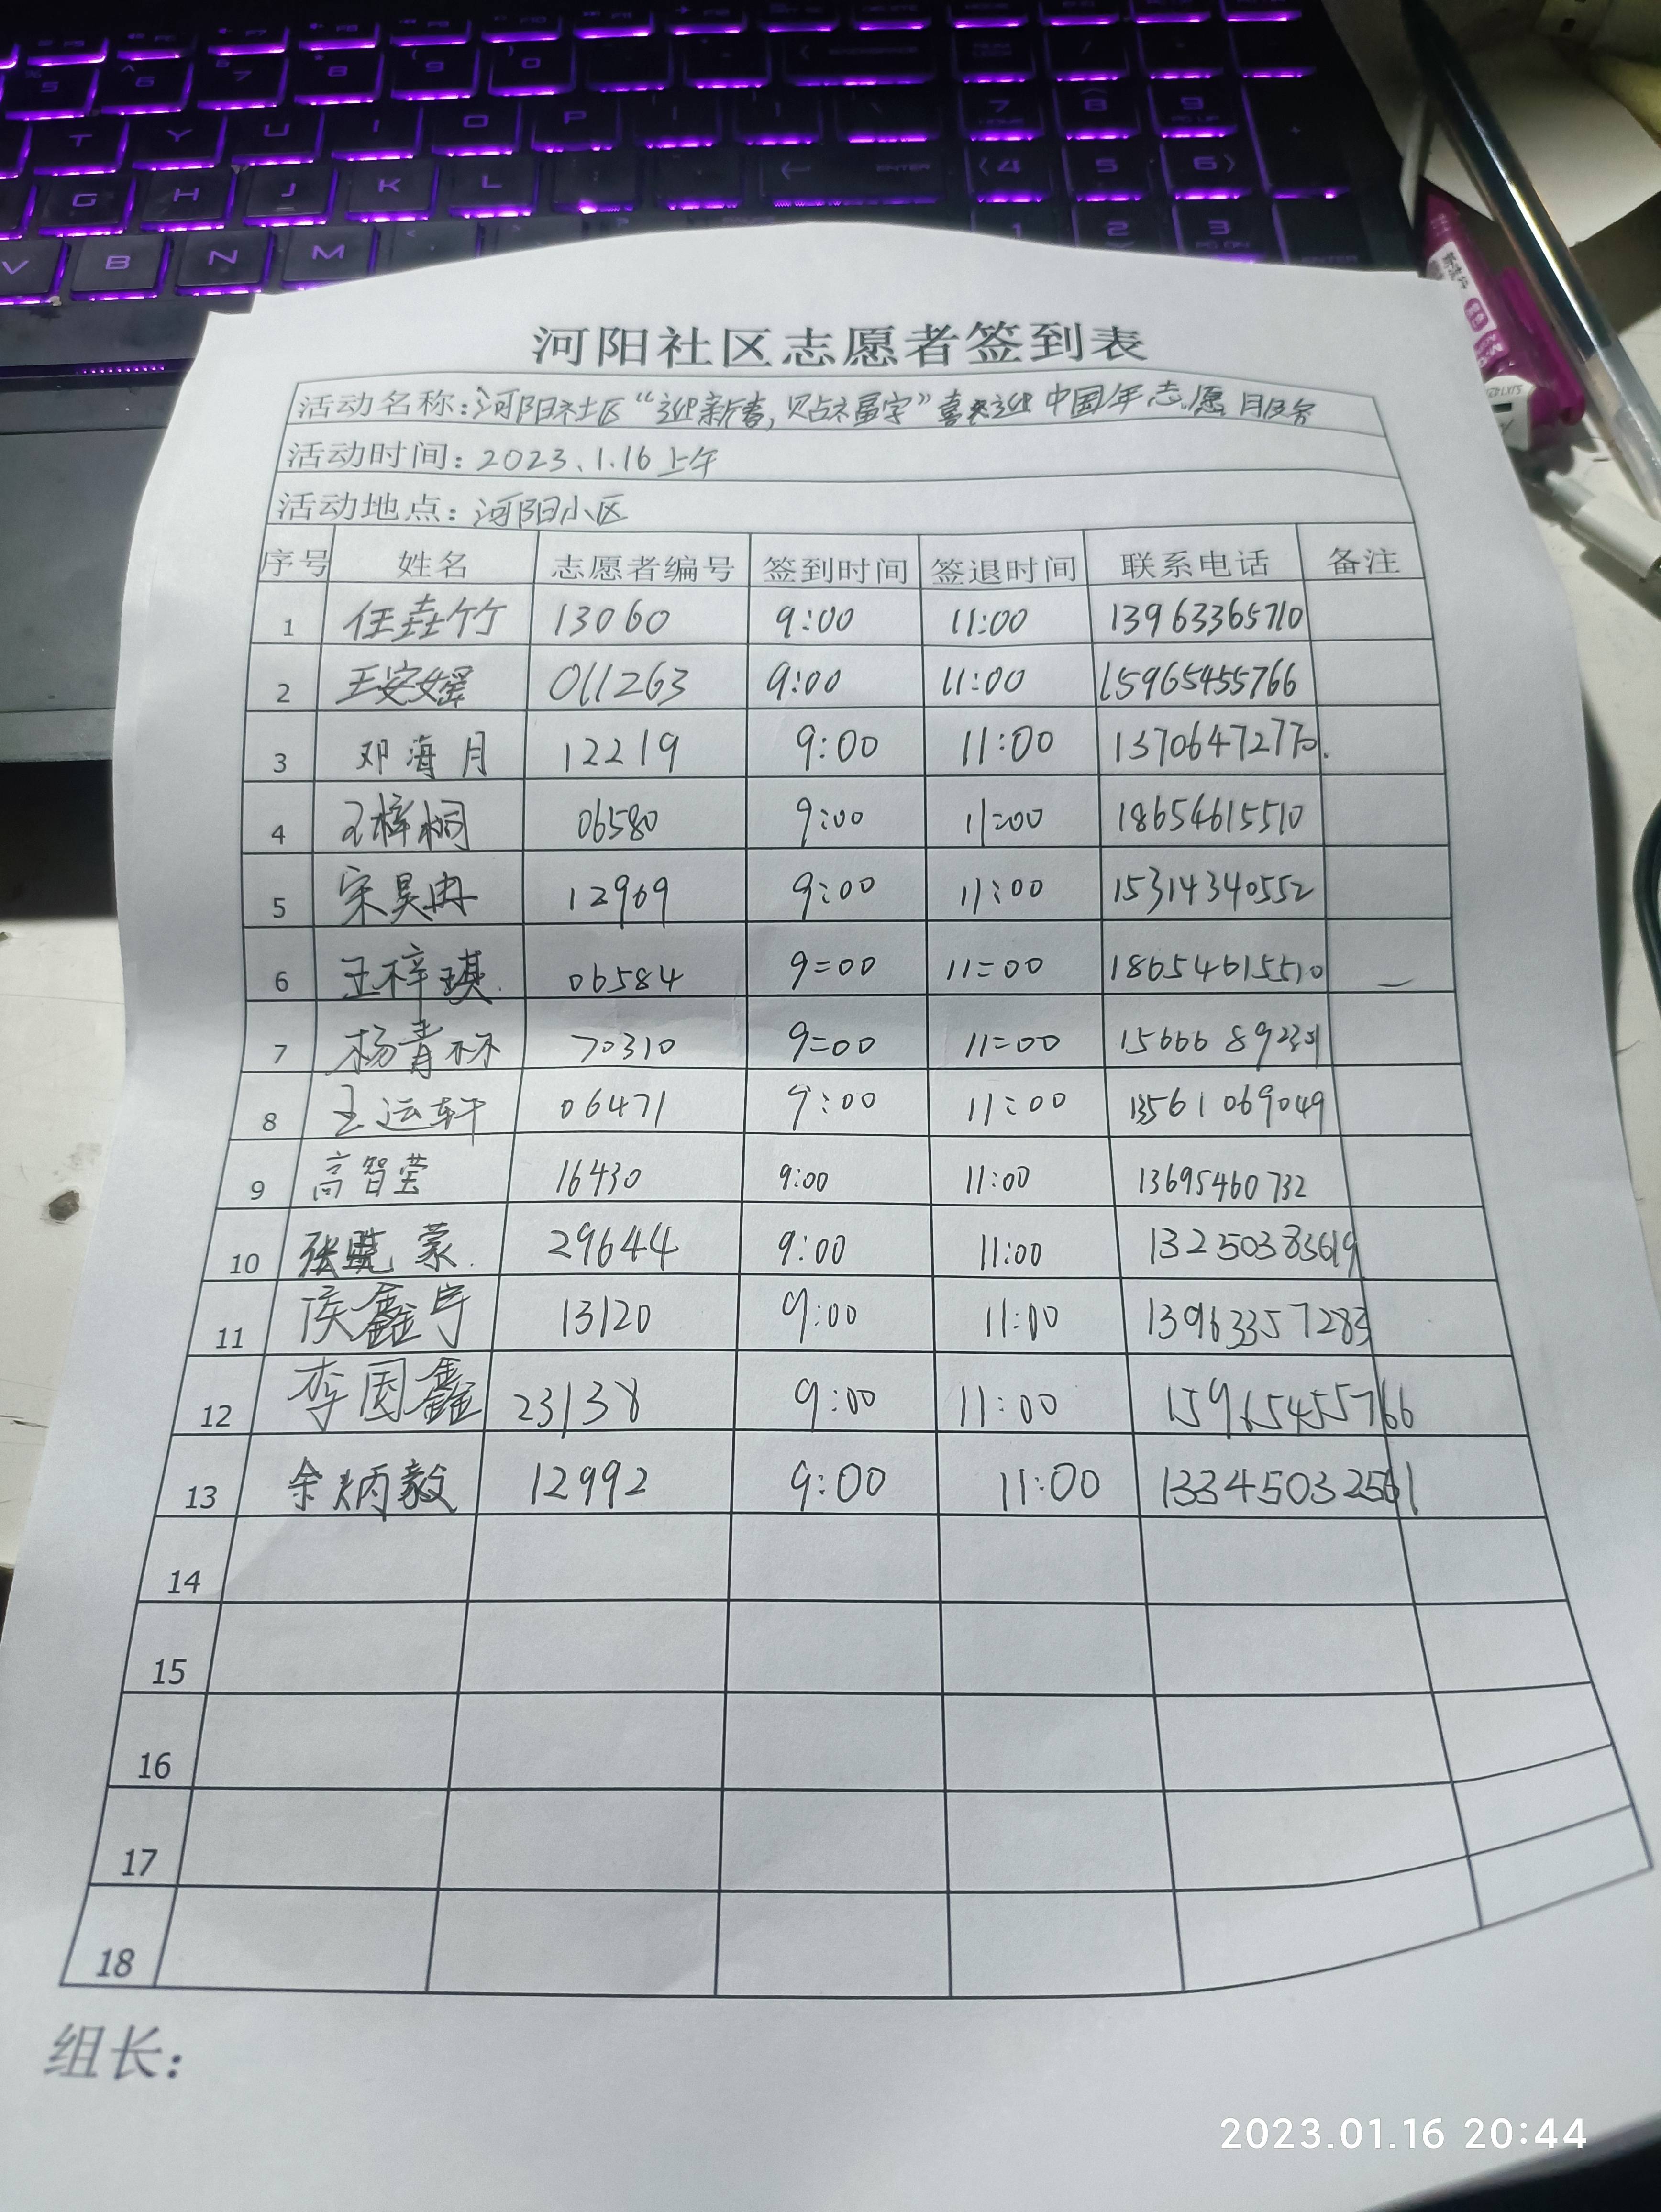 河阳社区志愿者签到表
活动名称:河阳社区“迎新春,贴福字”喜迎中国年志愿服务
活动时间:2023.1.16上午
活动地点:河阳小区
序号 姓名 志愿者编号 签到时间 签退时间 联系电话 备注
1 任垚竹 13060 9:00 11:00 13963365710
2 王安婼 011263 9:00 11:00 15965455766
3 邓海月 12219 9:00 11:00 13706472770.
4 王梓桐 06580 9:00 11:00 18654615510
5 宋昊冉 12969 9:00 11:00 15314340552
6 王梓琪. 06584 9=00 11=00 18654615510 —
7 杨青林 70310 9=00 11=00 15666
8 王运轩 06471 9:00 11:00 13561069049
9 高智莹 16430 9:00 11:00 13695460732
10 张晓蒙. 29644 9:00 11:00 13250383619
11 侯鑫宇 13120 9:00 11:00 13963357283
12 李国鑫 23138 9:00 11:00 15965455766
13 余炳毅 12992 9:00 11:00 13345032561
14
15
16
17
18
组长:
2023.01.16 20:44